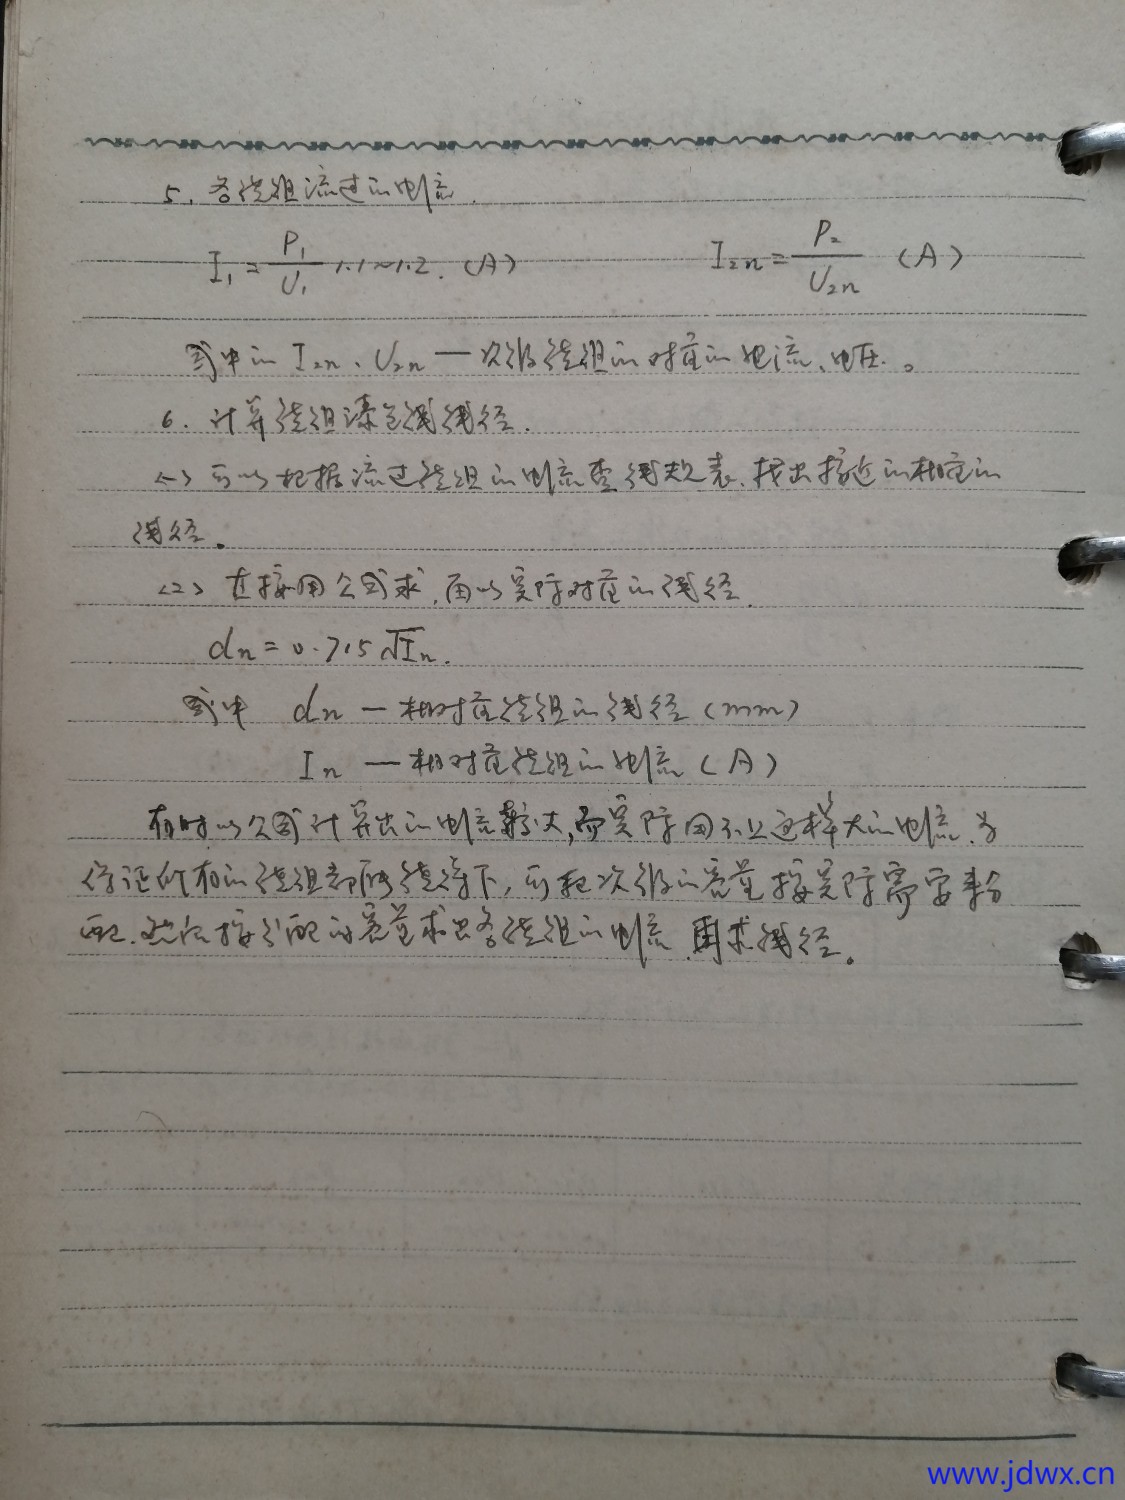 5. 各绕组流过的电流.
I₁ = P₁/U₁ 1.1~1.2. (A) I₂n = P₂/U₂n (A)
式中的 I₂n、U₂n — 次级绕组的对应的电流、电压。
6. 计算绕组漆包线线径.
<1> 可以根据流过绕组的电流查线规表、找出接近的相应的
线径。
<2> 直接用公式求, 再以实际对应的线径.
dn = 0.715 √In.
式中 dn — 相对应绕组的线径 (mm)
In — 相对应绕组的电流 (A)
有时以公式计算出的电流较大, 而实际用不上这样大的电流、为
保证所有的绕组都能绕得下, 可把次级的容量按实际需要来分
配、然后按分配的容量求出各绕组的电流、再求线径。
www.jdwx.cn